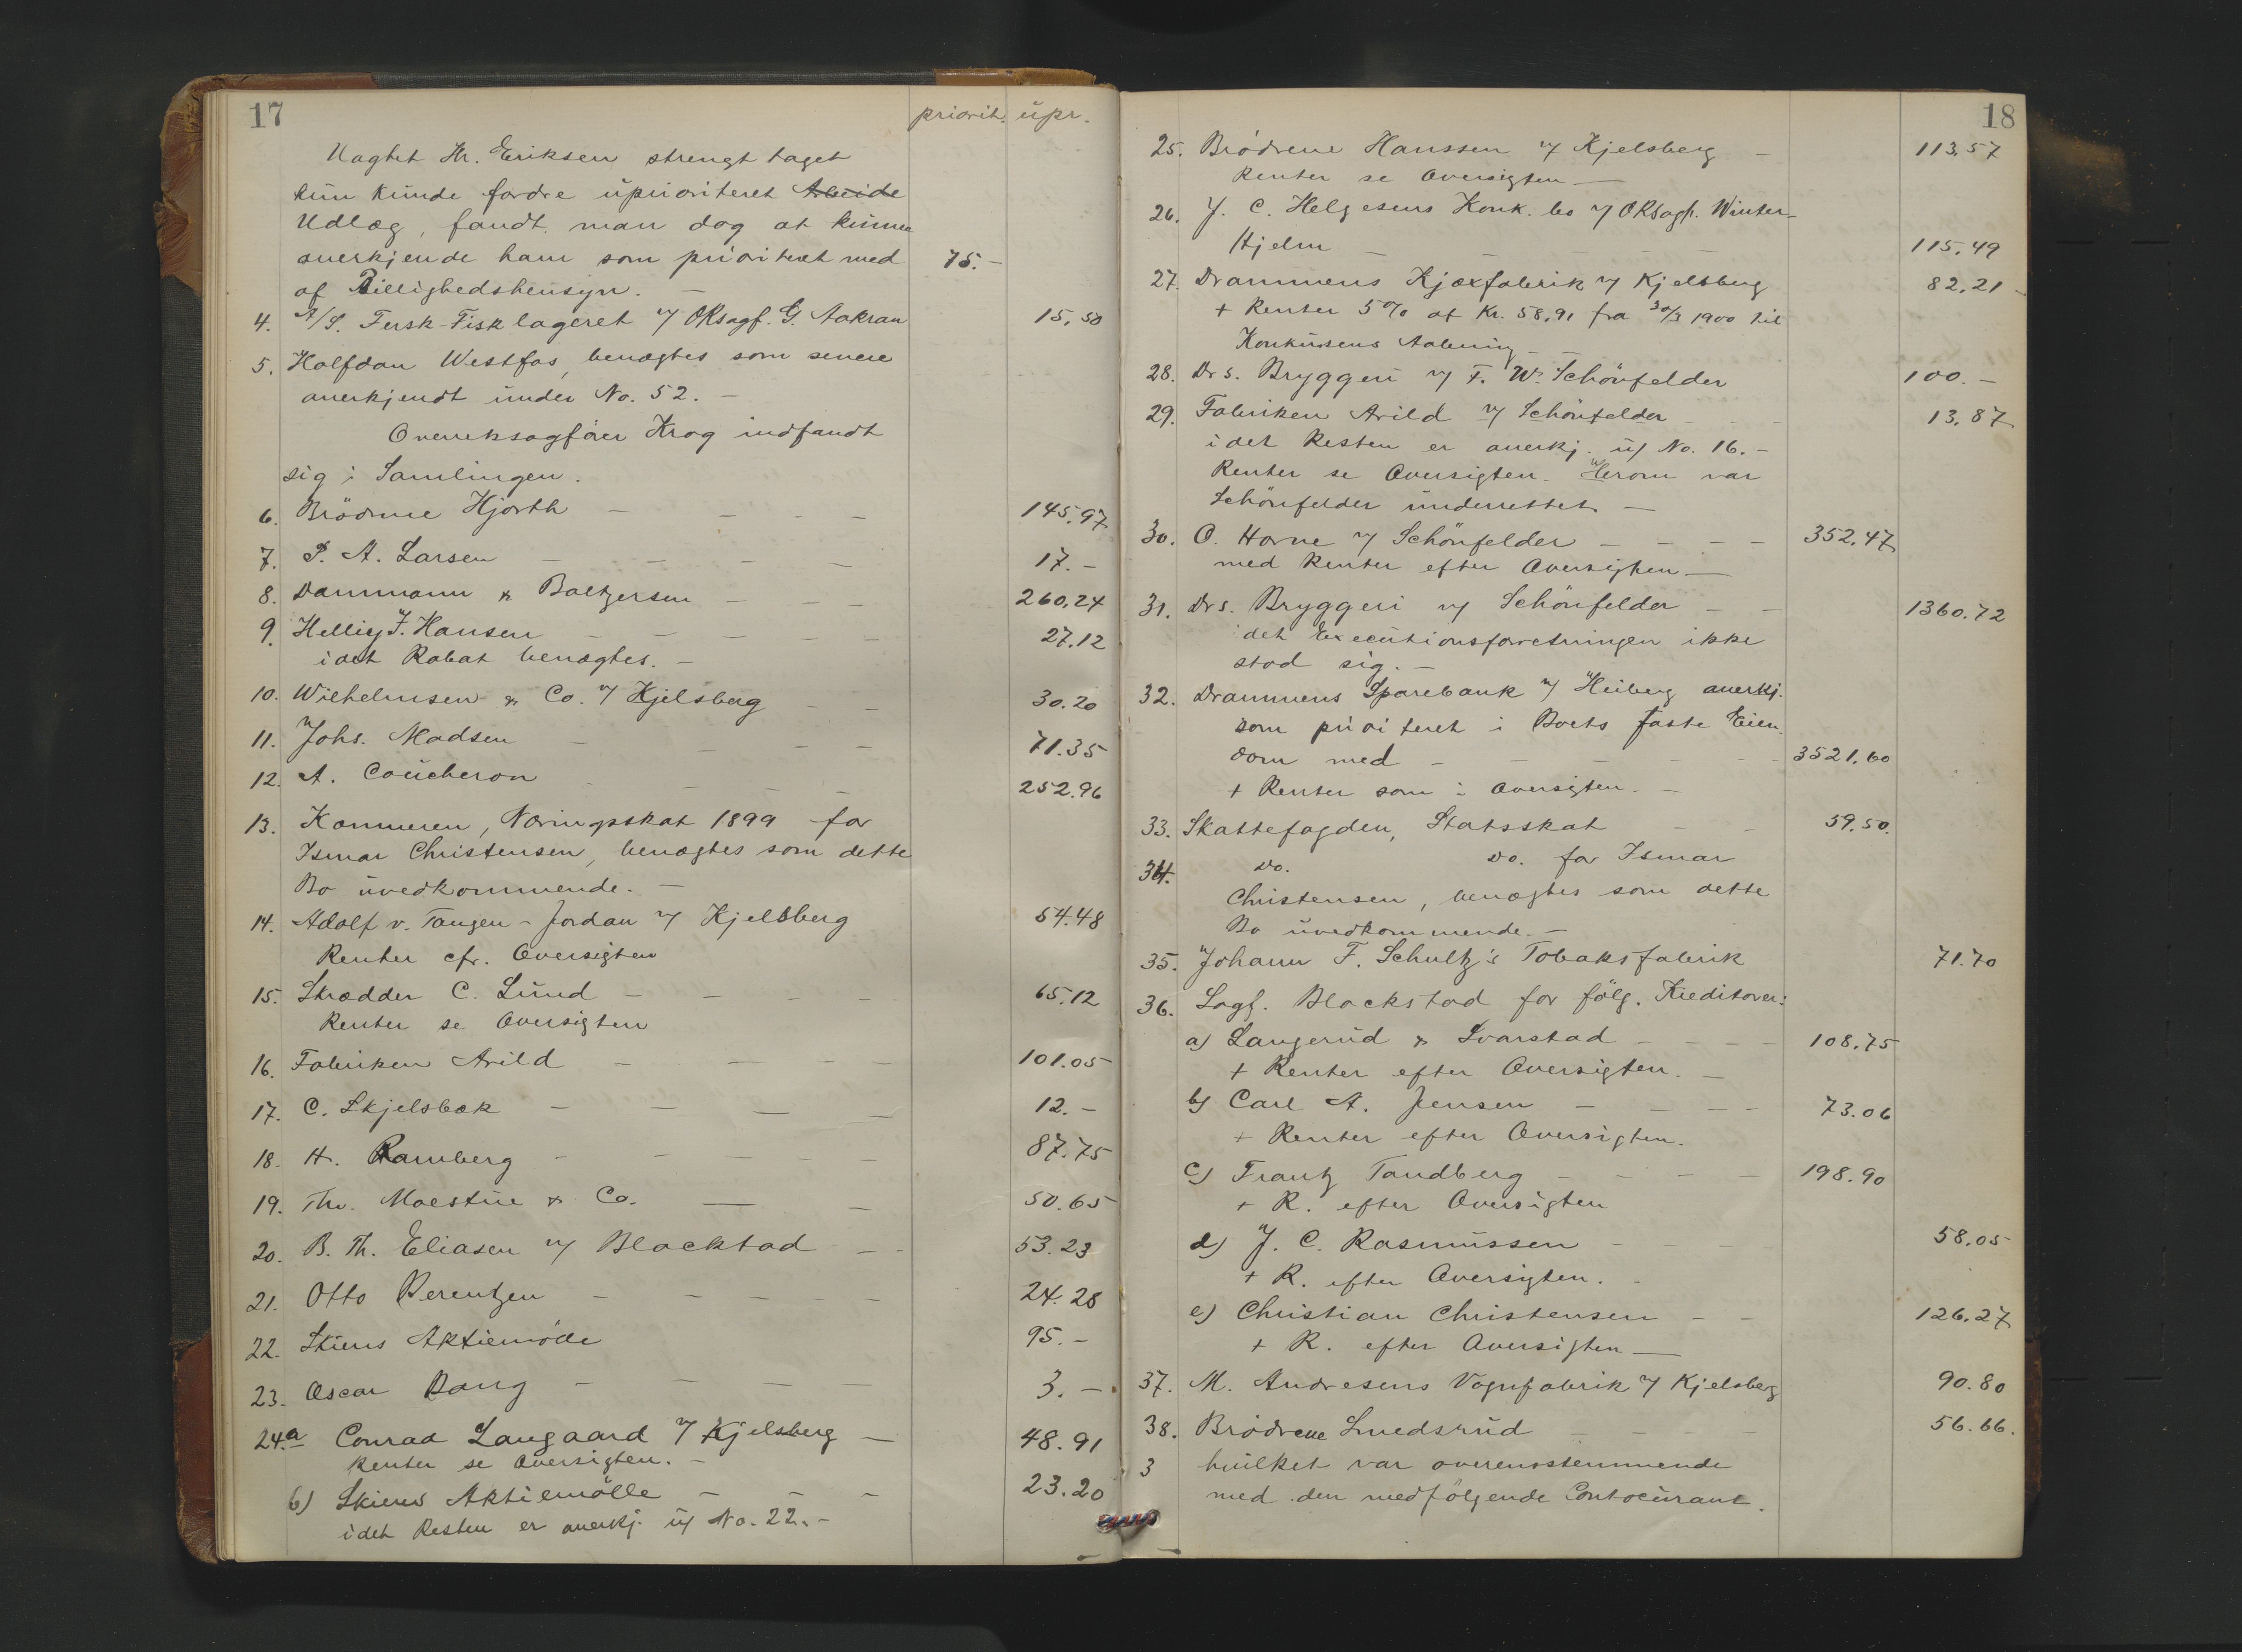 17
priorit. upr.
Uagtet Hr. Eriksen strengt taget
kun kunde fordre uprioriteret Arbeide
Udlæg, fandt man dog at kunne
anerkjende ham som prioriteret med 75.-
af Billighedshensyn. -
4. A/S. Fersk-Fisk lageret v/ ORsagf. G. Aakran 15,50
5. Halfdan Westfos, benægtes som senere
anerkjendt under No. 52. -
Overretssagfører Krag indfandt
sig i Samlingen.
6. Brödrene Hjorth - - - - 145,97
7. P. A. Larsen - - - - 17.-
8. Dammann & Baltzersen - - - 260,24
9. Hellig J. Hansen - - - - - 27.12
idet Rabat benægtes. -
10. Wilhelmsen & Co. v/ Kjelsberg - - 30.20
11. Johs. Madsen - - - - 71.35
12. A. Coucheron - - - - 252.96
13. Kæmneren, Næringsskat 1899 for
Ismar Christensen, benægtes som dette
Bo uvedkommende. -
14. Adolf v. Tangen-Jordan v/ Kjelsberg 54.48
Renter cfr. Oversigten
15. Skrædder C. Lund - - - - - 65.12
Renter se Oversigten
16. Fabriken Arild - - - - 101.05
17. C. Skjelsbæk - - - - 12.-
18. H. Ramberg - - - - - 87.75
19. Thv. Moestue & Co. - - 50.65
20. B. Th. Eliasen v/ Blackstad - - 53.23
21. Otto Berentzen - - - - - 24.28
22. Skiens Aktiemölle 95.-
23. Oscar Bang - - - - 3.-
24.a Conrad Langaard v/ Kjelsberg - 48.91
Renter se Oversigten. -
b) Skiens Aktiemölle - - - 23.20
idet Resten er anerkj. u/ No. 22. -
18
25. Brödrene Hanssen v/ Kjelsberg - 113,57
Renter se Oversigten -
26. J. C. Helgesens Konk. bo v/ ORsagf. Winter-
Hjelm - - - - - 115,49
27. Drammens Kjæxfabrik v/ Kjelsberg 82,21 -
+ Renter 5% af Kr. 58,91 fra 30/3 1900 til
Konkursens Aabning - -
28. Drs. Bryggeri v/ F. W. Schönfelder 100.-
29. Fabriken Arild v/ Schönfelder - - - 13,87
idet Resten er anerkj. u/ No. 16. -
Renter se Oversigten. Herom var
Schönfelder underrettet -
30. O. Horne v/ Schönfelder - - - - 352,47
med Renter efter Oversigten -
31. Drs. Bryggeri v/ Schönfelder - - 1360.72
idet Executionsforretningen ikke
stod sig. -
32. Drammens Sparebank v/ Heiberg anerkj.
som prioriteret i Boets faste Eien-
dom med - - - - - 3521,60
+ Renter som i Oversigten. -
33. Skattefogden, Statsskat - - 59,50.
34. Do. Do. for Ismar
Christensen, benægtes som dette
Bo uvedkommende. -
35. Johann F. Schultz's Tobaksfabrik 71.70
36. Sagf. Blackstad for fölg. Kreditorer:
a) Langerud & Svarstad - - - - 108,75
+ Renter efter Oversigten. -
b) Carl A. Jensen - - - - 73.06
+ Renter efter Oversigten.
c) Frantz Tandberg - - - - 198.90
+ R. efter Oversigten
d) J. C. Rasmussen - - - 58.05
+ R. efter Oversigten. -
e) Christian Christensen - - 126.27
+ R. efter Oversigten -
37. M. Andresens Vognfabrik v/ Kjelsberg 90.80
38. Brödrene Smedsrud - - - - 56.66.
3 hvilket var overensstemmende
med den medfölgende Contocurant.